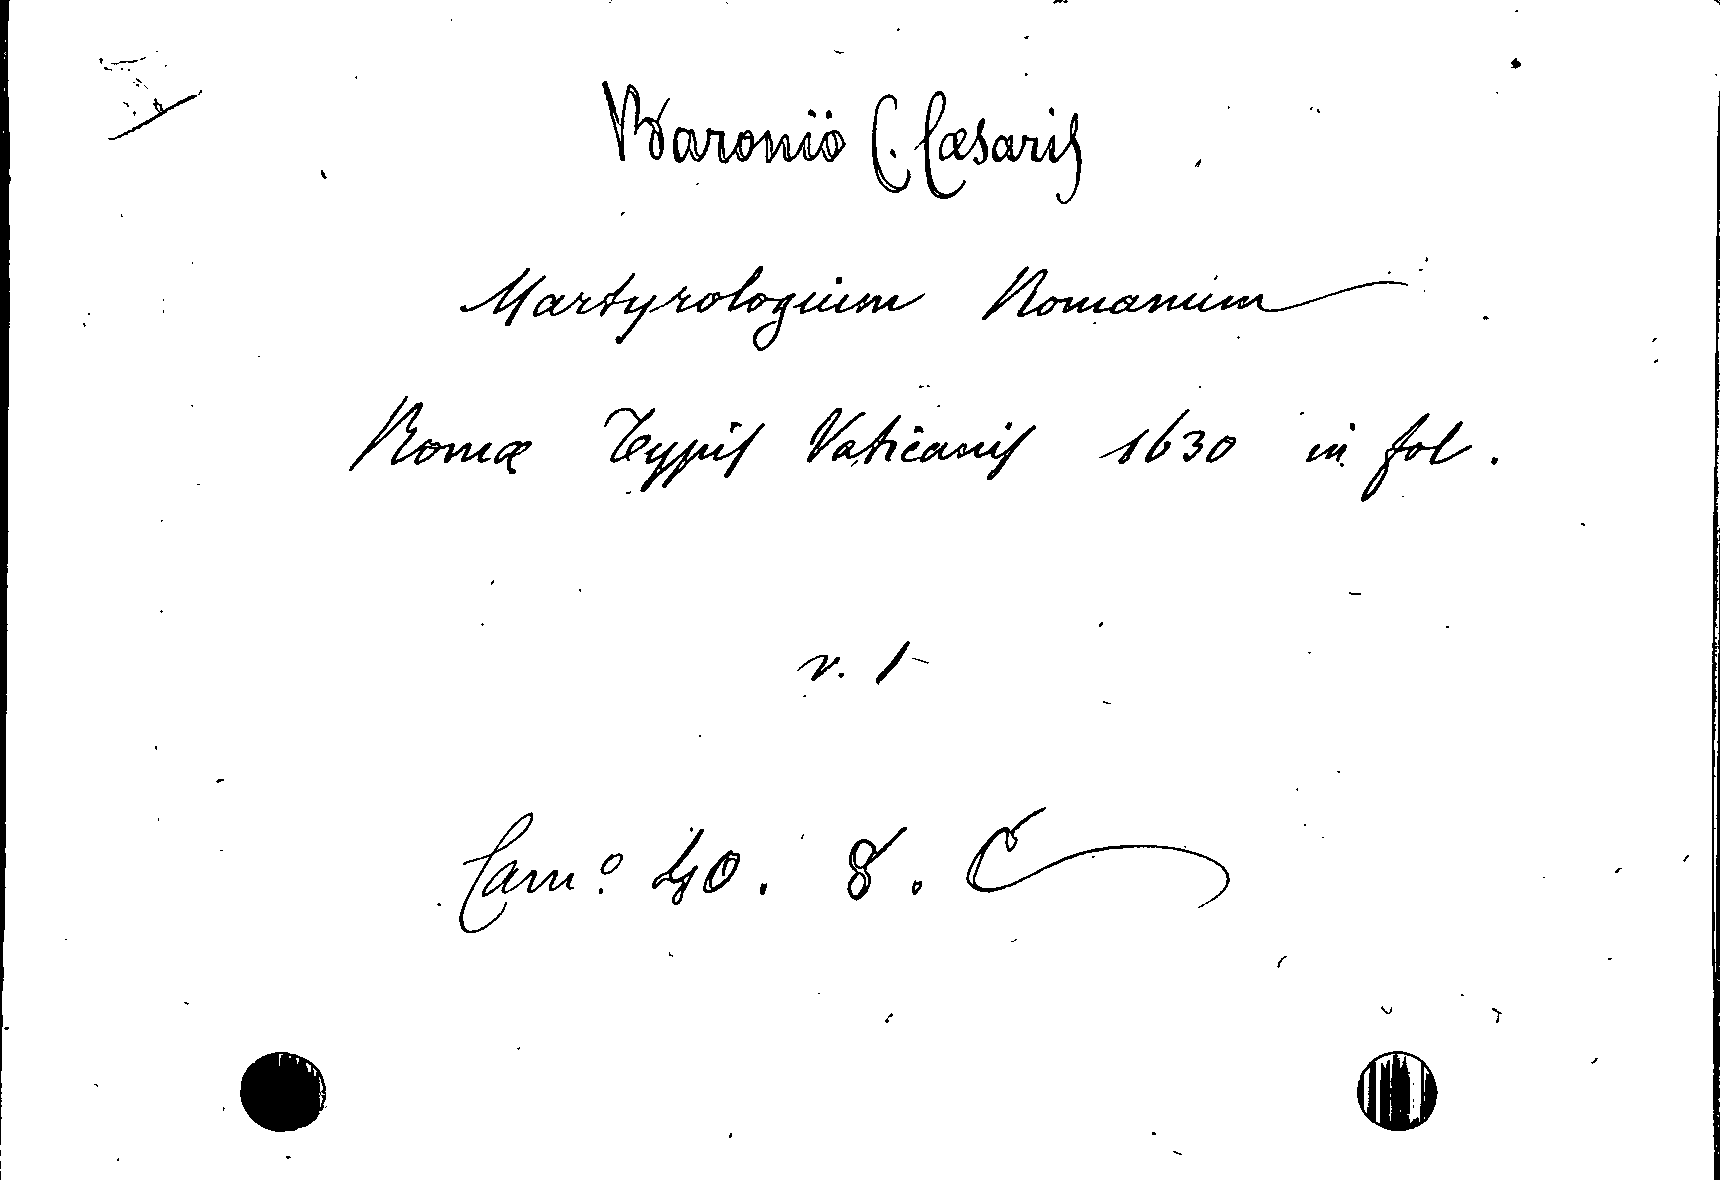 Baroniö C. Cæsaris
Martyrologium Romanum
Romæ Typis Vaticanis 1630 in fol.
v. 1
Cam.º 40. 8. C